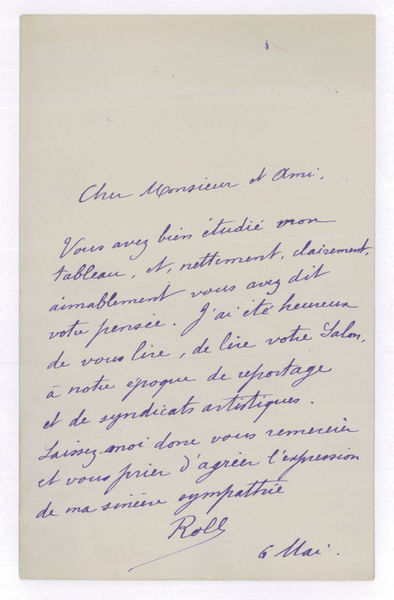 Cher Monsieur et Ami,
Vous avez bien étudié mon
tableau, et, nettement, clairement,
aimablement vous avez dit
votre pensée. J'ai été heureux
de vous lire, de lire votre Salon,
à notre époque de reportage
et de syndicats artistiques.
Laissez-moi donc vous remercier
et vous prier d'agréer l'expression
de ma sincère sympathie
Roll
6 Mai.